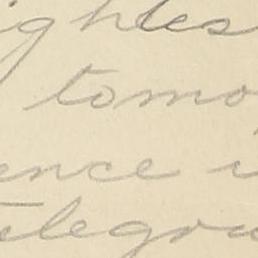 ghtes
tomo
ence i
telegra